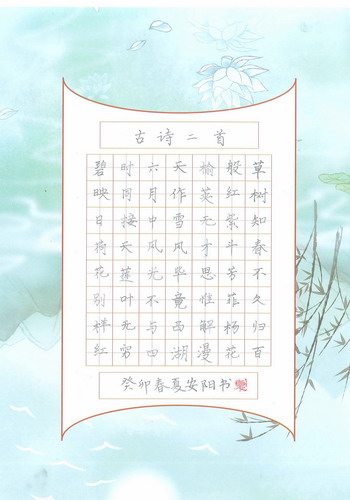 古诗二首
草树知春不久归百
般红紫斗芳菲杨花
榆荚无才思惟解漫
天作雪飞毕竟西湖
六月中风光不与四
时同接天莲叶无穷
碧映日荷花别样红
癸卯春夏安阳书